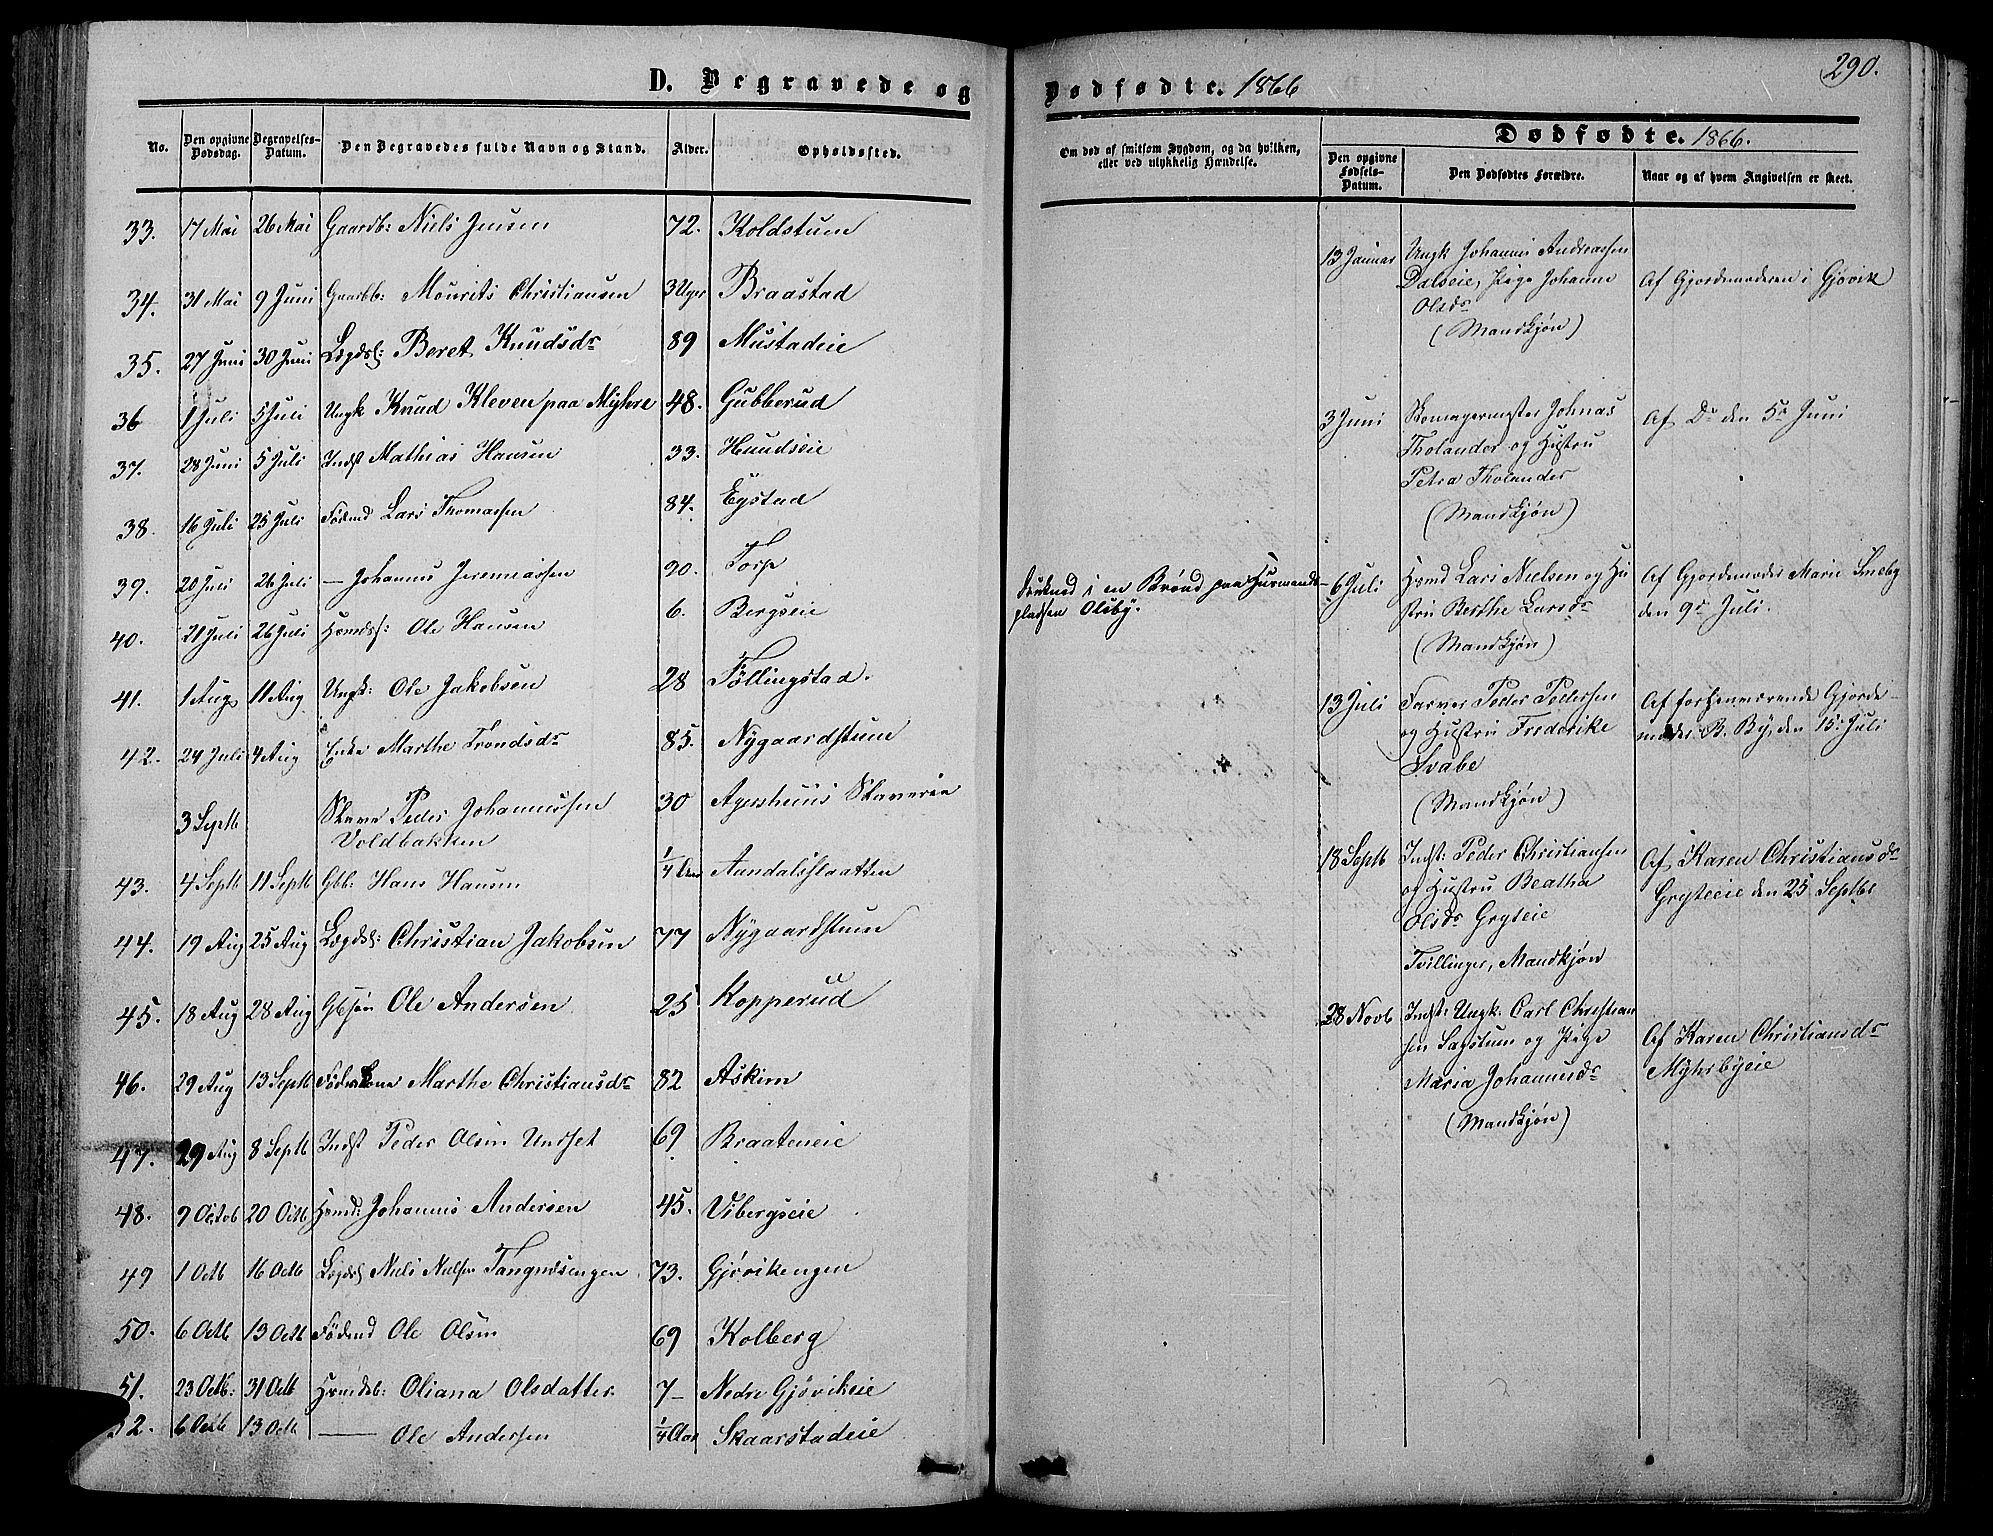 290.
D. Begravede og Dødfødte. 1866
No. Den opgivne Dødsdag. Begravelses-Datum. Den Begravedes fulde Navn og Stand. Alder. Opholdssted.
33. 17 Mai 26 Mai Gaardb: Niels Jensen 72. Koldstum
34. 31 Mai 9 Juni Gaardb: Mourits Christiansen 3 Uger Braastad
35. 27 Juni 30 Juni Lægdsl: Beret Knudsdr 89 Mustadeie
36 1 Juli 5 Juli Ungk Knud Kleven paa Myhre 48. Gubberud
37. 28 Juni 5 Juli Indst Mathias Hansen 33. Hundseie
38. 16 Juli 25 Juli Föderd Lars Thomassen 84. Eystad
39. 20 Juli 26 Juli — Johannes Jeremiassen 90. Torp
40. 21 Juli 26 Juli Hrmdsf: Ole Hansen 6. Bergseie
41. 1 Aug 11 Aug Ungk: Ole Jakobsen 28 Föllingstad.
42. 24 Juli 4 Aug Enke Marthe Trondsdr 85. Nygaardstuen
3 Septb Slave Peder Johannessen 30 Agershuus Slaverie
Voldbakken
43. 4 Septb 11 Septb Gbb: Hans Hansen 1/4 Aar Aandalsslaatten
44. 19 Aug 25 Aug Lægdsl: Christian Jakobsen 77 Nygaardstuen
45. 18 Aug 28 Aug Gbsøn Ole Andersen 25 Kopperud
46. 29 Aug 13 Septb Marthe Christiansdr 82 Askim
47. 29 Aug 8 Septb Indst Peder Olsen Undset 69 Braateneie
48. 9 Octob 20 Octb Hrmd: Johannes Andersen 45. Vibergseie
49 1 Octb 16 Octb Lægdsl Niels Nielsen Tangndsengen 73. Gjøvikengen
50. 6 Octb 13 Octb Föderd Ole Olsen 69 Kolberg
51. 23 Octb: 31 Octb Hrmdsb: Oliana Olsdatter 7 — Nedre Gjövikeie
52. 6 Octb 13 Octb — Ole Andersen 1/4 Aar Skaarstadeie
Om død af smitsom Sygdom, og da hvilken,
eller ved ulykkelig Hændelse.
Druknet i en Brønd paa Huusmands-
pladsen Olsby.
Dødfødte. 1866.
Den opgivne Fødsels-Datum. Den Dødfødtes Forældre. Naar og af hvem Angivelsen er skeet.
13 Januar Ungk Johannes Andreassen
Dalseie, Pige Johanne Af Gjordemoderen i Gjövik
Olsdr
(Mandkjøn)
3 Juni Skomagermester Johnas Af Do den 5te Juni
Tholander og Hustru
Petra Tholander
(Mandkjøn)
6 Juli Hrmd Lars Nielsen og Hu Af Gjordemoder Marie Smeby
stru Berthe Larsdr den 9de Juli.
(Mandkjøn)
13 Juli Farver Peder Pedersen Af forhenværende Gjorde-
og Hustru Frederike moder B. By, den 15de Juli
Svabe
(Mandkjøn)
18 Septb Indst: Peder Christiansen Af Karen Christiansdr
og Hustru Beatha Gryteeie den 25 Septbr
Olsdr Gryteie
Tvillinger, Mandkjøn
28 Novb Indst: Ungk: Carl Christian
sen Sagstuen og Pige Af Karen Christiansdr
Maria Johannesdr Myhrbyeie
(Mandkjøn)